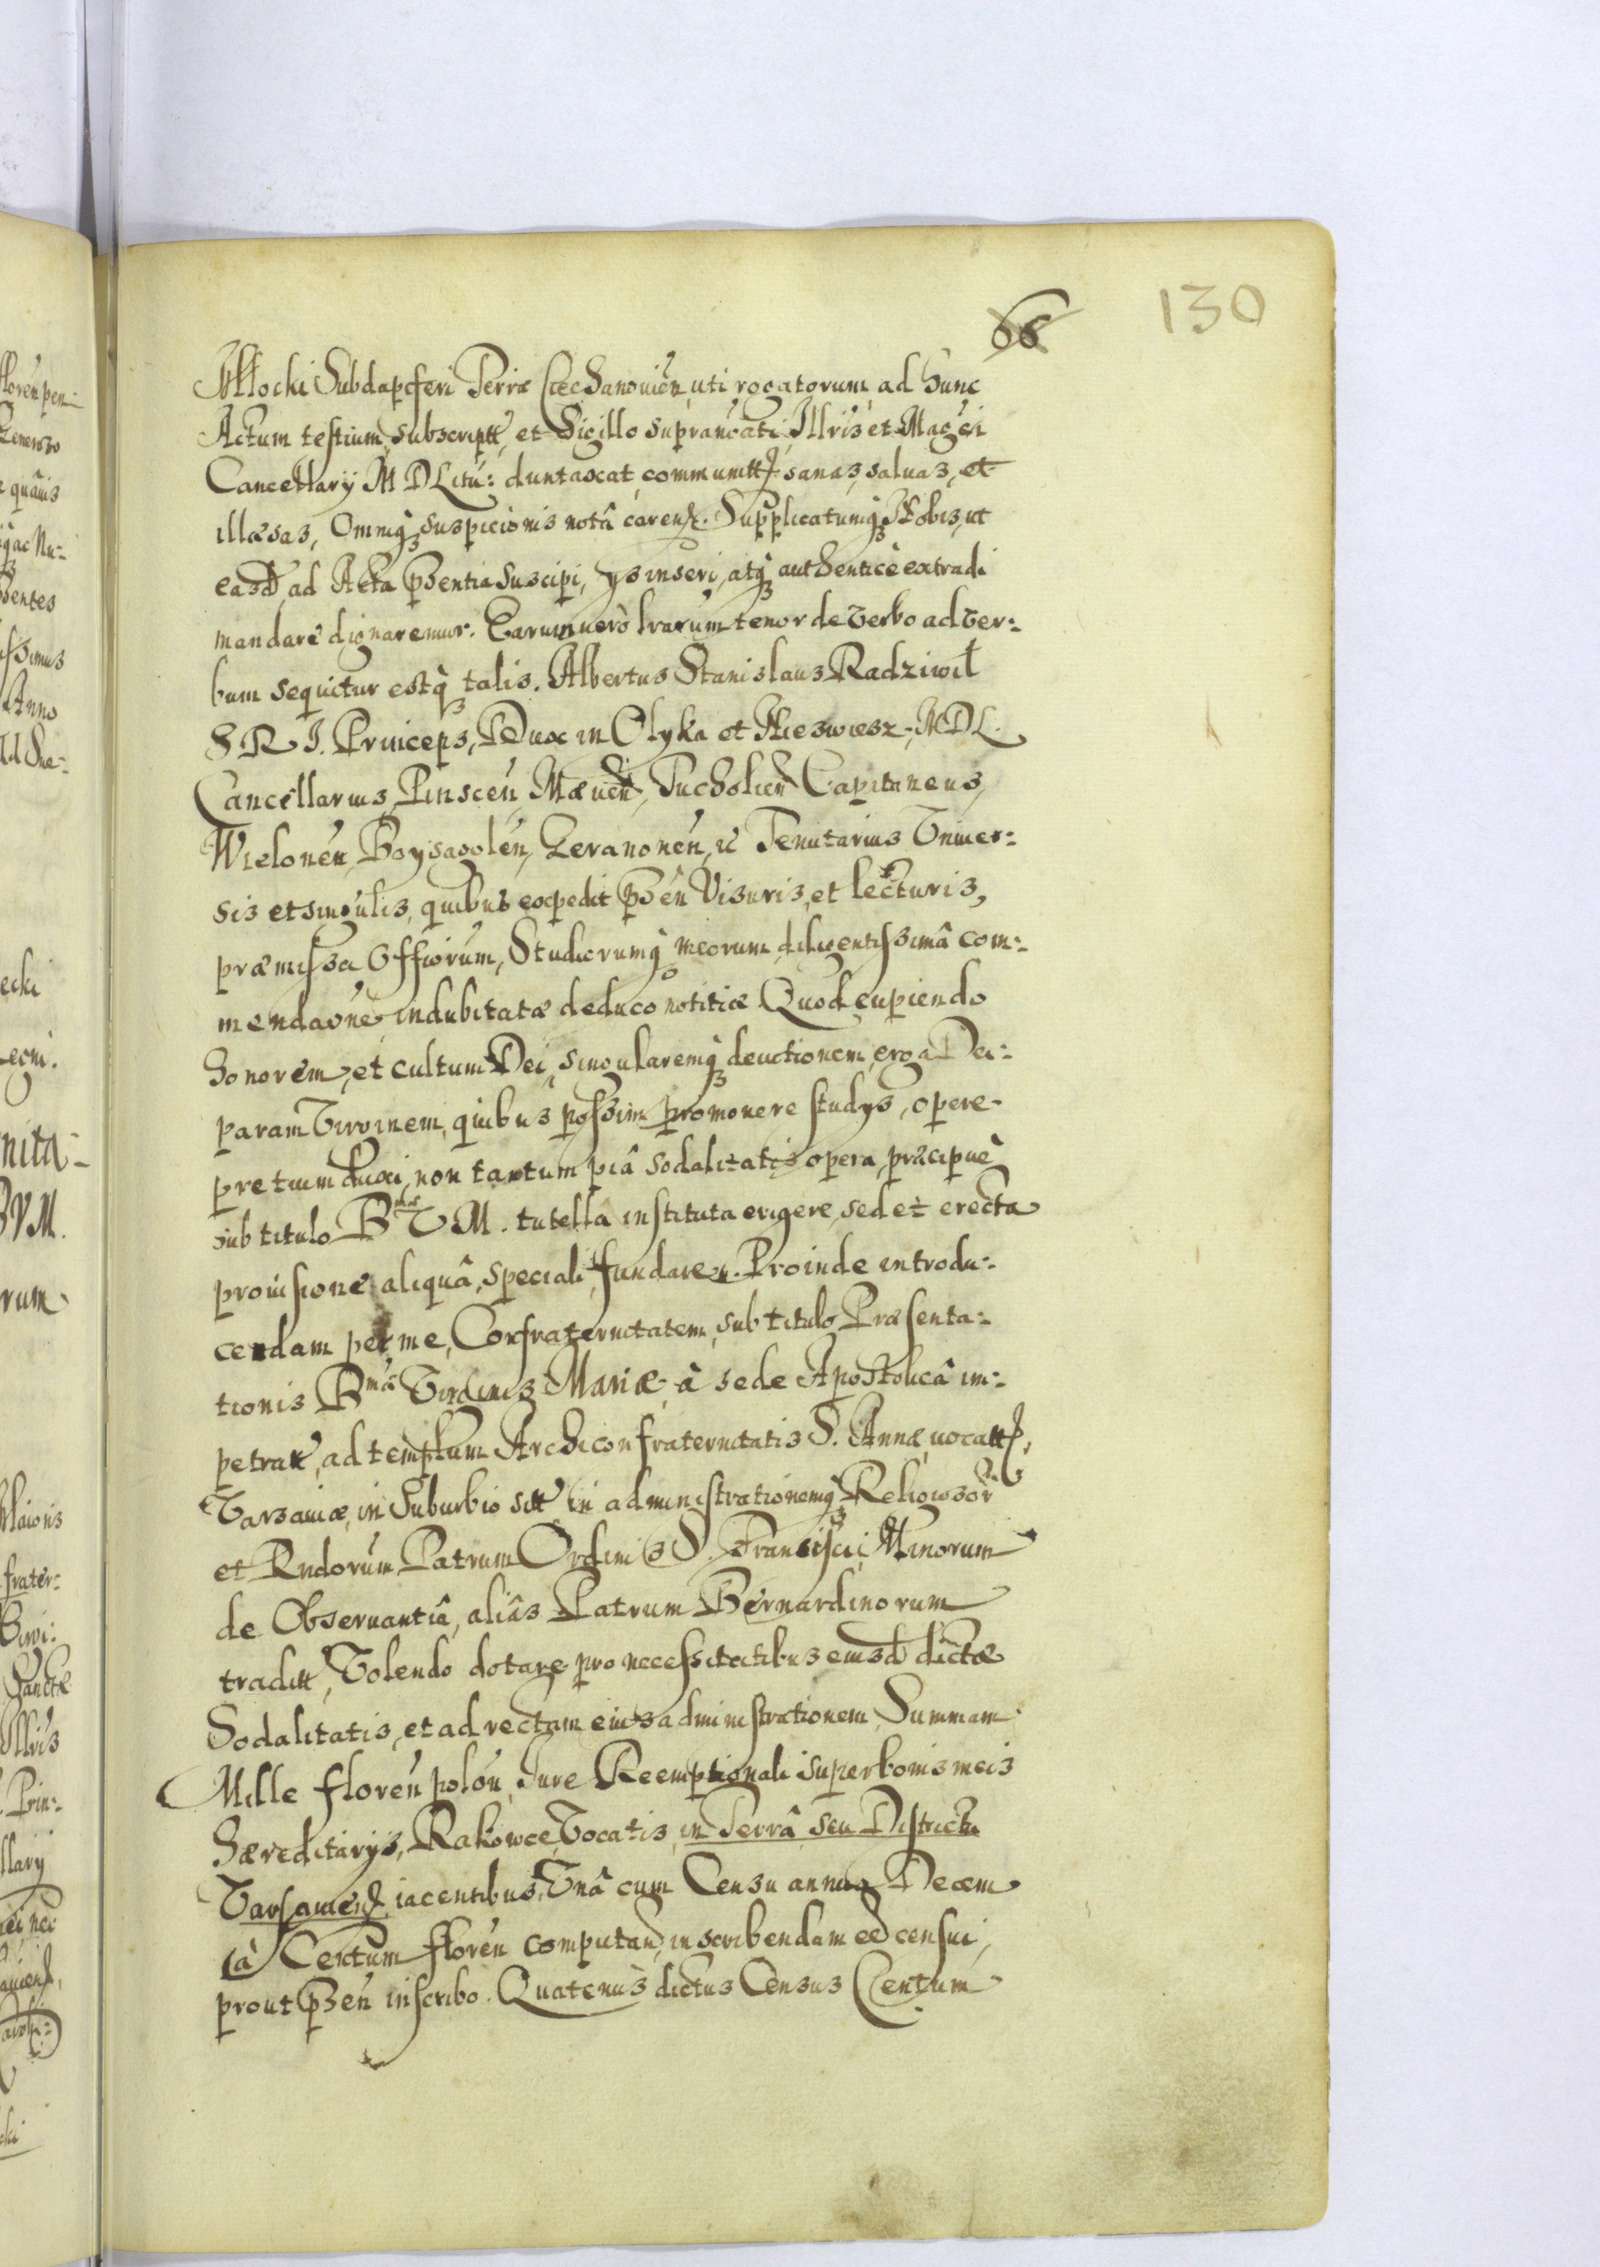 66 130
Młocki Subdapiferi Terræ Ciechanouien, uti rogatorum, ad hunc
Actum testium, subscriptt, et Sigillo supranoati, Illris et Magci
Cancellary M D Litu: duntaxat communitt, sanas, saluas, et
illæsas, Omniq suspicionis notâ caren. Supplicatumq Nobis, ut
easd ad Acta pnsentia Suscipi, ys inseri, atq authenticè extradi
mandare dignaremur. Earum uerò lrarum tenor de Verbo ad Ver:
bum sequitur estq talis. Albertus Stanislaus Radziwił
S R I. Princeps, Dux in Olyka et Nieswiesz, M D L.
Cancellarius, Pinscen, Mæuen, Tucholien Capitaneus,
Wielonen, Boysagolen, Geranonen, &c Tenutarius Vniuer:
sis et singulis, quibus expedit pnsen Visuris, et lecturis,
præmissa Offiorum, Studiorumq meorum diligentissimâ com:
mendaone indubitatæ deduco notitiæ Quod cupiendo
honorem, et cultum Dei, singularemq deuotionem, erga Dei:
param Virginem, quibus possim promouere studys, opere
pretium duxi, non tantum piâ sodalitatis opera, præcipuè
sub titulo B V M. tutella instituta erigere, sed et erecta
prouisione aliquâ, speciali, fundare. Proinde introdu:
cendam per me, Confraternitatem, sub titulo Præsenta:
tionis Bmæ Virginis Mariæ, à sede Apostolicâ im:
petratt, ad templum Archiconfraternitatis S. Annæ uocatt,
Varsauiæ, in Suburbio sitt in administrationemq Religiosor
et Rndorum Patrum Ordinis S. Francisci, Minorum
de Obseruantiâ, aliâs Patrum Bernardinorum
traditt, Volendo dotare pro necessitatibus eiusd dictæ
Sodalitatis, et ad rectam eius administrationem, Summam
Mille floren polon, Jure Reemptionali super bonis meis
hæreditarys, Rakowce, Vocatis, in Terrâ seu Districtu
Varsauien iacentibus, Vnâ cum Censu annuo Decem
à Centum floren computan, inscribendam censui,
prout pnsen inscribo. Quatenùs dictus Census Centum